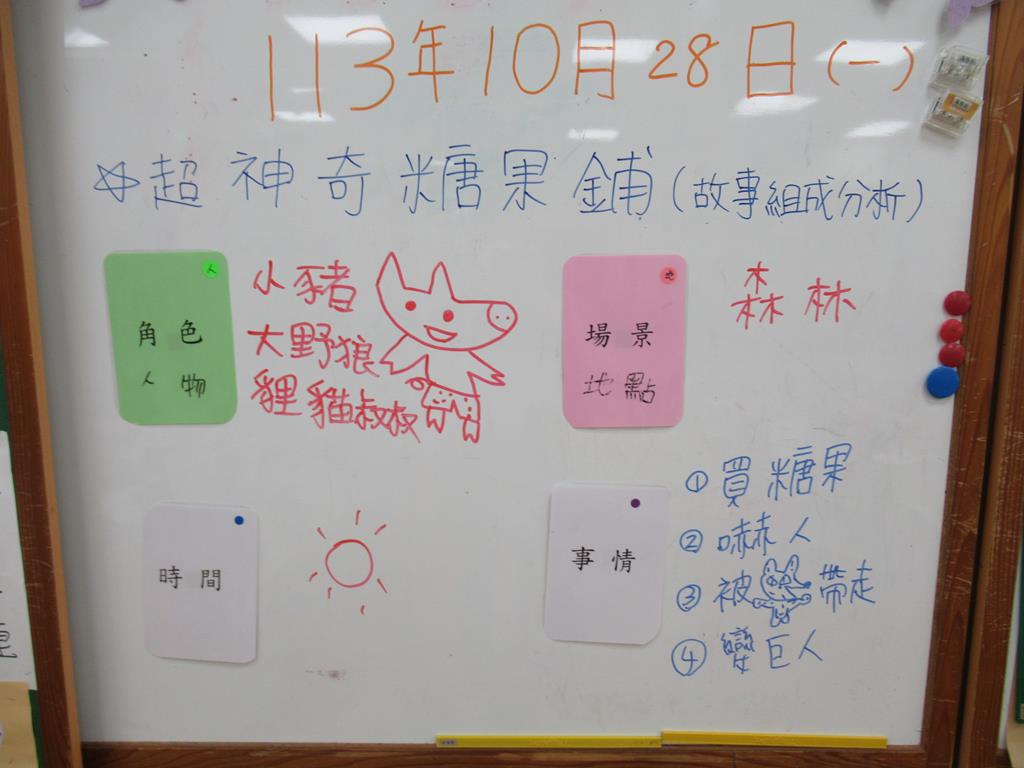 113年10月28日(一)
☆超神奇糖果鋪(故事組成分析)
人
角色
人物
小豬
大野狼
貍貓叔叔
地
場景
地點
森林
時間
事情
①買糖果
②嚇人
③被帶走
④變巨人